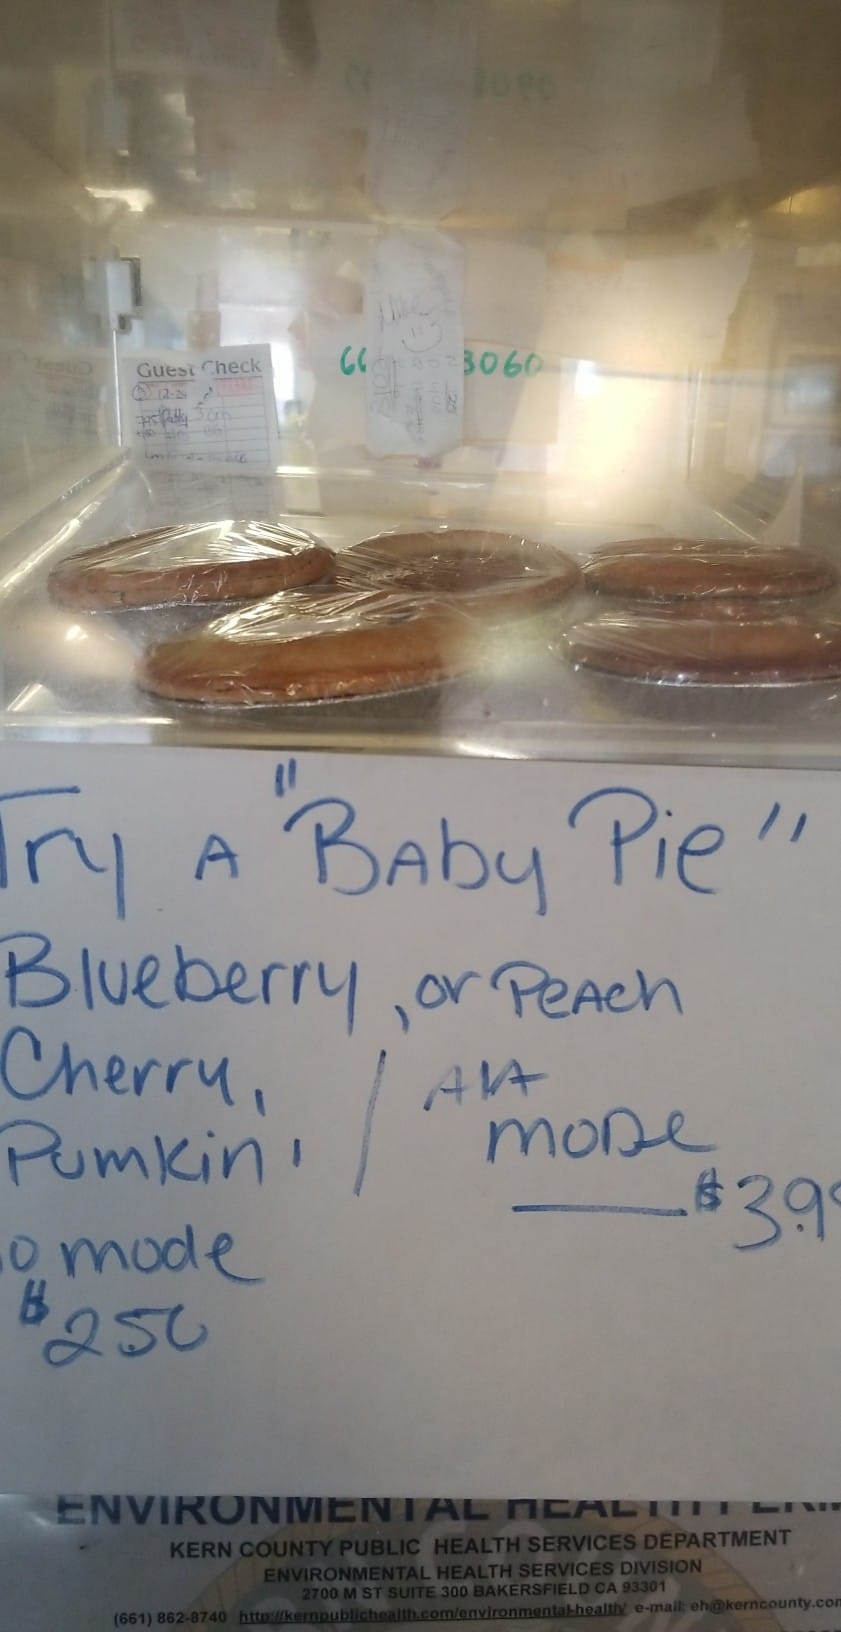 Guest Check
12-24
Mike
3060
Try A "Baby Pie"
Blueberry, or Peach
Cherry, / AlA
Pumkin, mode
$3.99
o mode
$250
ENVIRONMENTAL HEALTH PERM
KERN COUNTY PUBLIC HEALTH SERVICES DEPARTMENT
ENVIRONMENTAL HEALTH SERVICES DIVISION
2700 M ST SUITE 300 BAKERSFIELD CA 93301
(661) 862-8740 http://kernpublichealth.com/environmental-health/ e-mail: eh@kerncounty.com